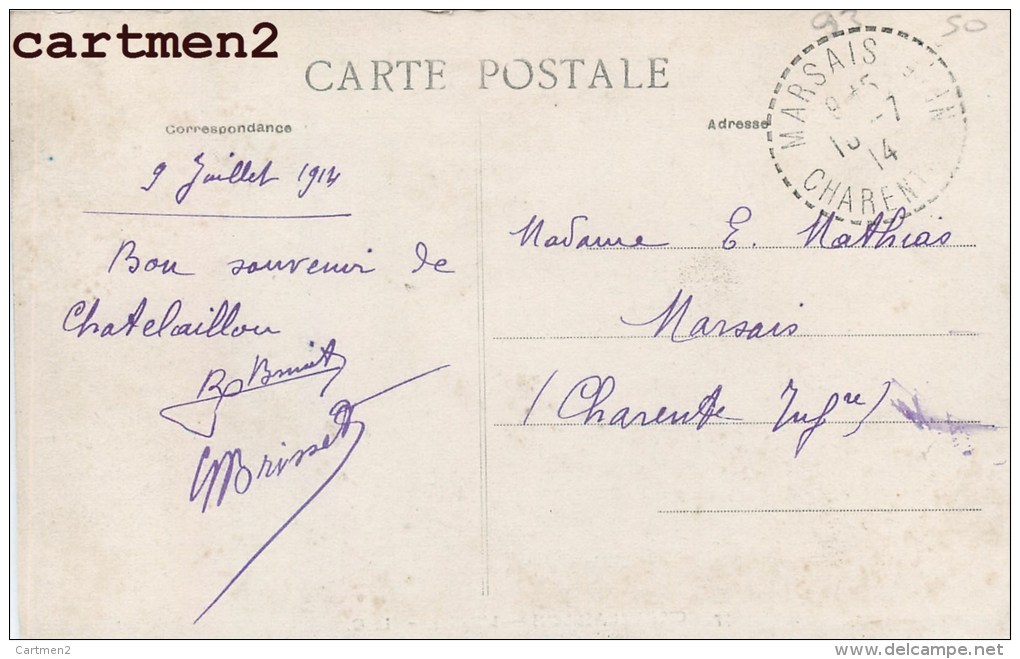 cartmen2
93
50
CARTE POSTALE
MARSAIS
CHARENT
10 -7
14
Correspondance
Adresse
9 Juillet 1914
Bon souvenir de
Chatelaillon
Madame E. Mathias
Marsais
(Charente Infre)
Cartmen2
www.delcampe.net